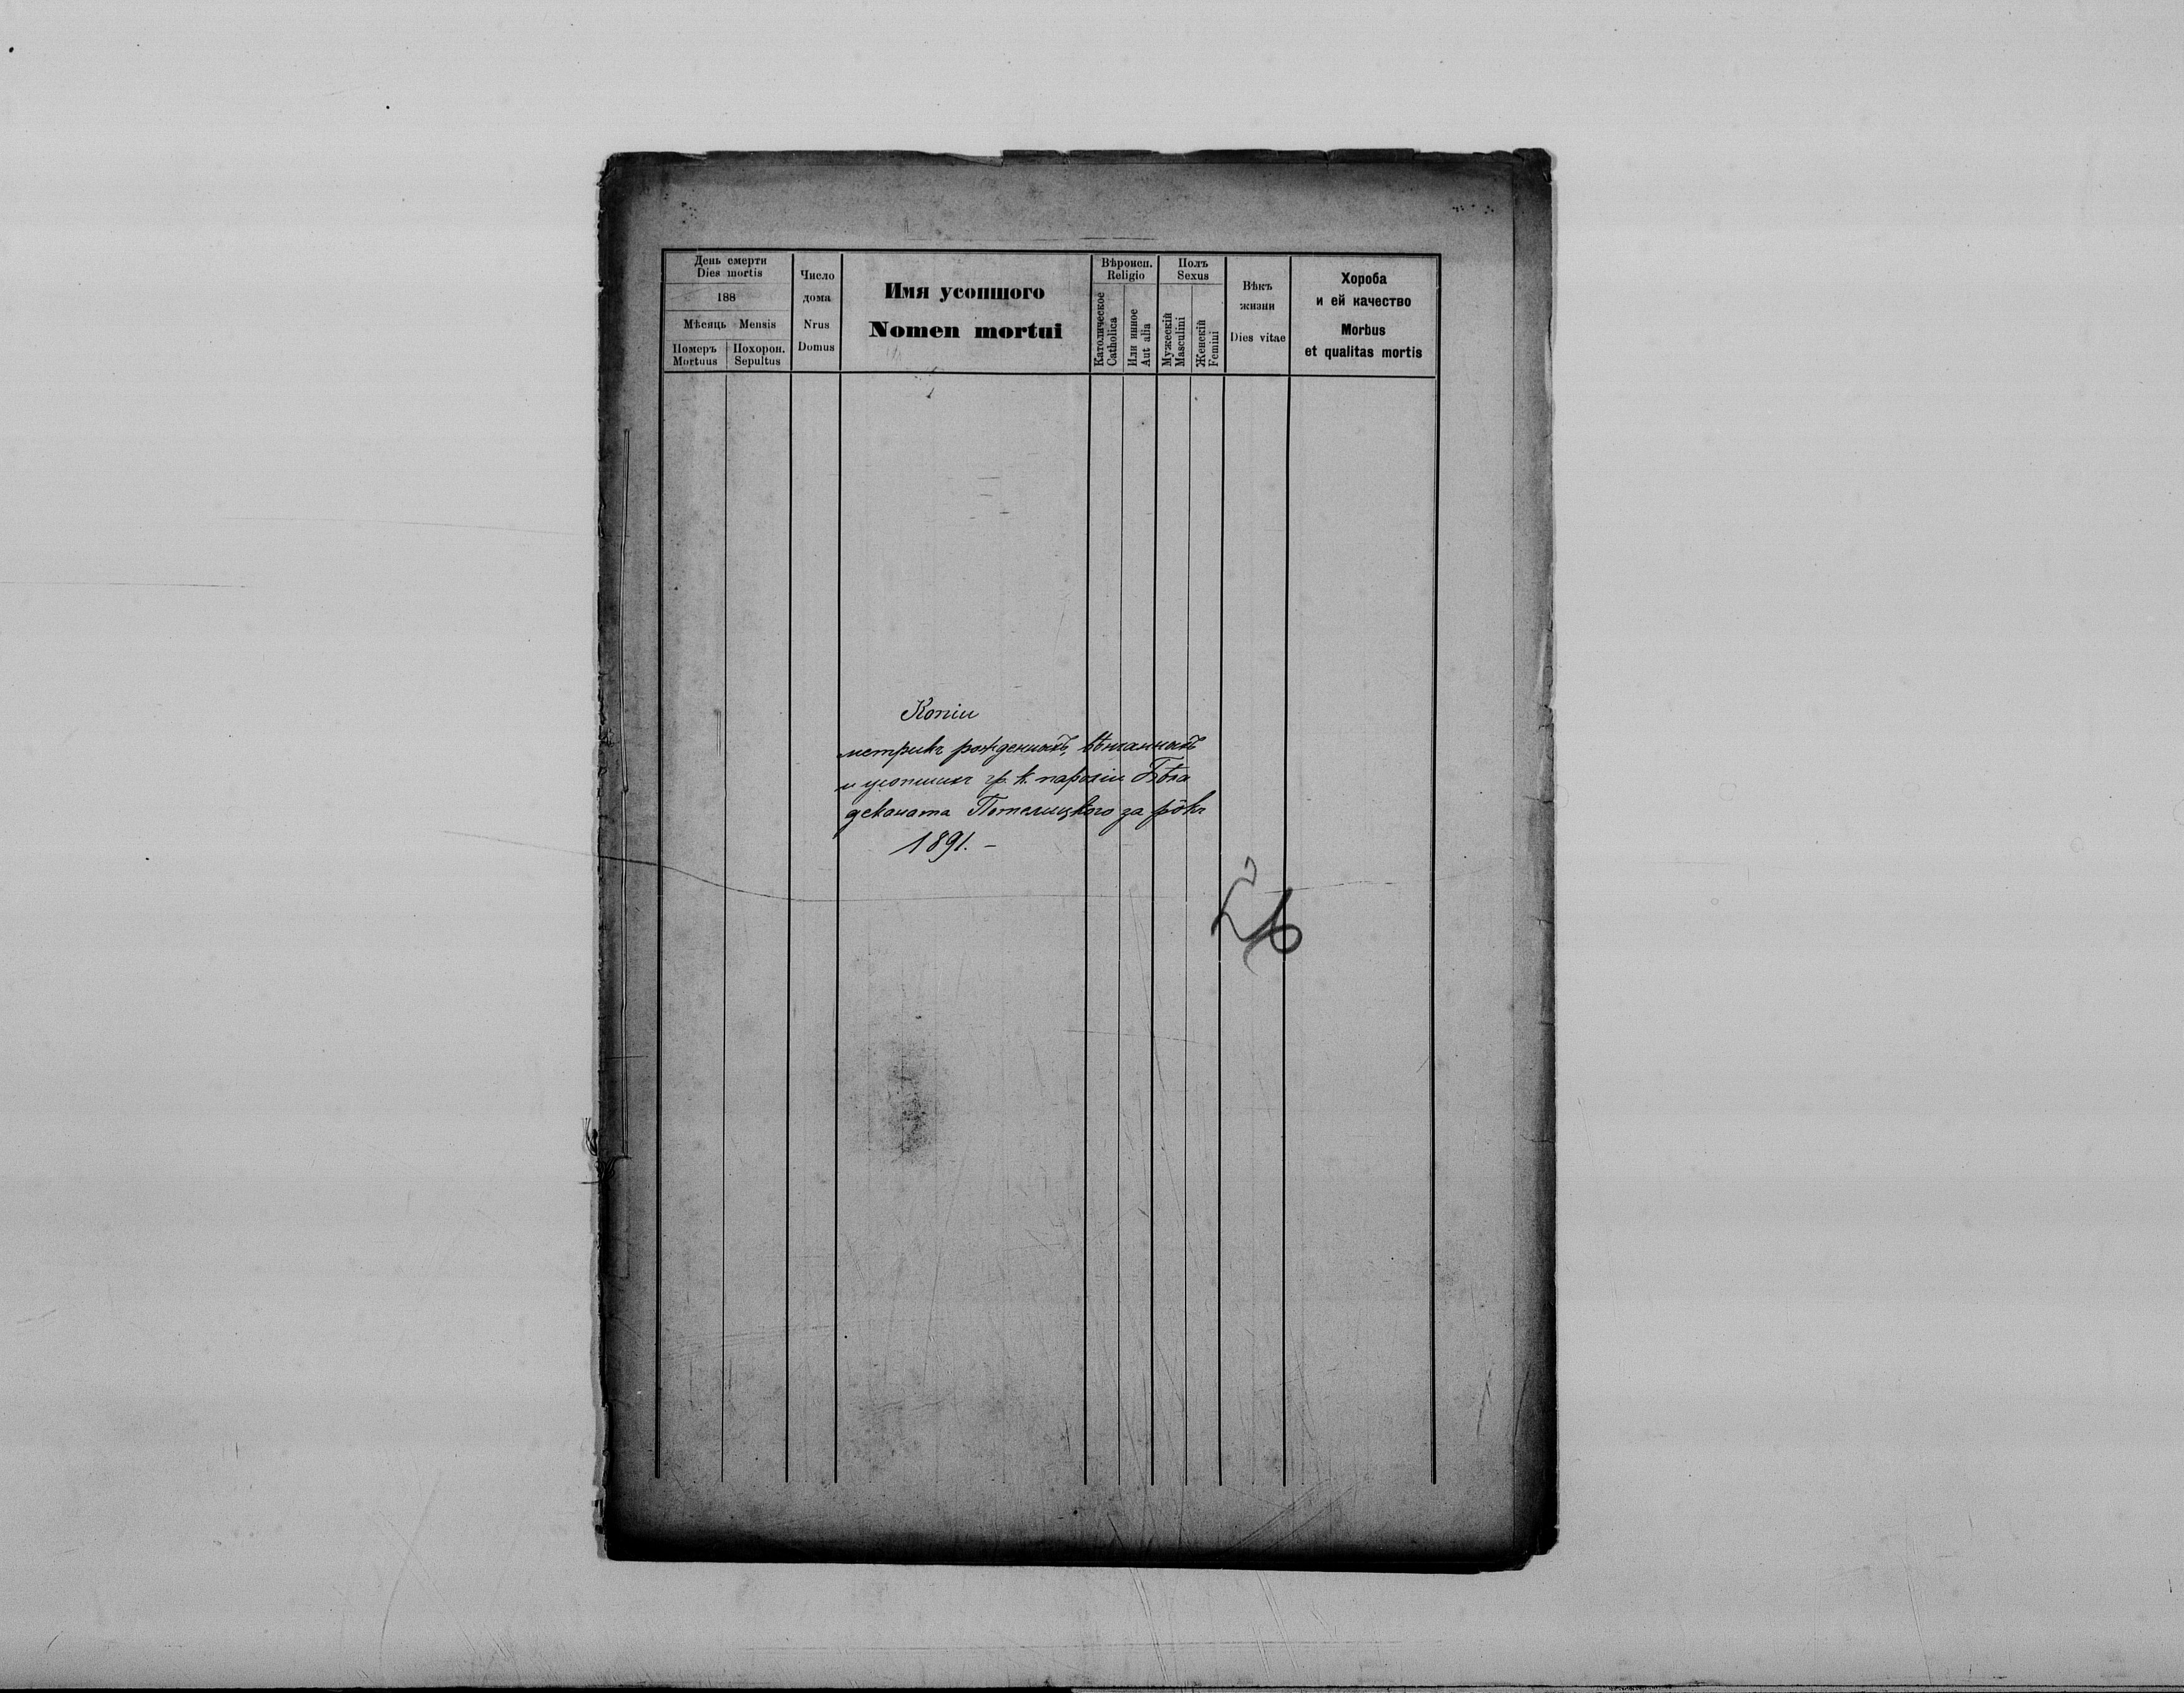 День смерти
Dies mortis
188
Мѣсяць Mensis
Померъ Похорон.
Mortuus Sepultus
Число
дома
Nrus
Domus
Имя усопшого
Nomen mortui
Вѣроисп.
Religio
Католическое
Catholica
Или инное
Aut alia
Полъ
Sexus
Мужескій
Masculini
Женскій
Femini
Вѣкъ
жизни
Dies vitae
Хороба
и ей качество
Morbus
et qualitas mortis
Копіи
метрикъ рожденныхъ, вѣнчанныхъ
и усопшихъ гр. к. парохіи
деканата Потелицкого за рôкъ
1891. –